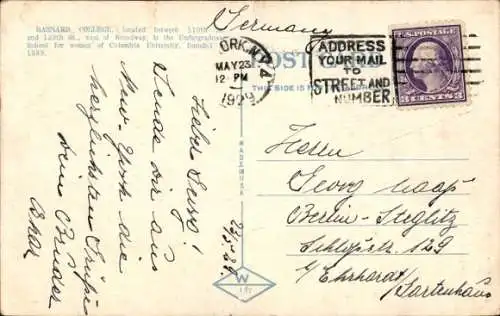 BARNARD COLLEGE, located between 116th St.
and 120th St., west of Broadway, is the Undergraduate
School for women of Columbia University. Founded
1889.
Germany
ORK, N.Y.
MAY 23
12 PM
1929
ADDRESS
YOUR MAIL
TO
STREET AND
NUMBER
U.S. POSTAGE
3 CENTS 3
POST
THIS SIDE IS
ADDRESS
MADE IN U.S.A.
W
Lieber
Sende Dir aus
New-York die
herzlichsten Grüße
Dein Bruder
Oskar
23/5.29.
Herrn
Georg Haase
Berlin-Steglitz
129
b/ Ehrhardt / Gartenhaus